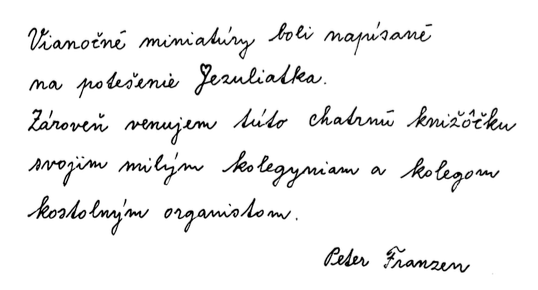 Vianočné miniatúry boli napísané
na potešenie Jezuliatka.
Zároveň venujem túto chatrnú knižôčku
svojim milým kolegyniam a kolegom
kostolným organistom.
Peter Franzen